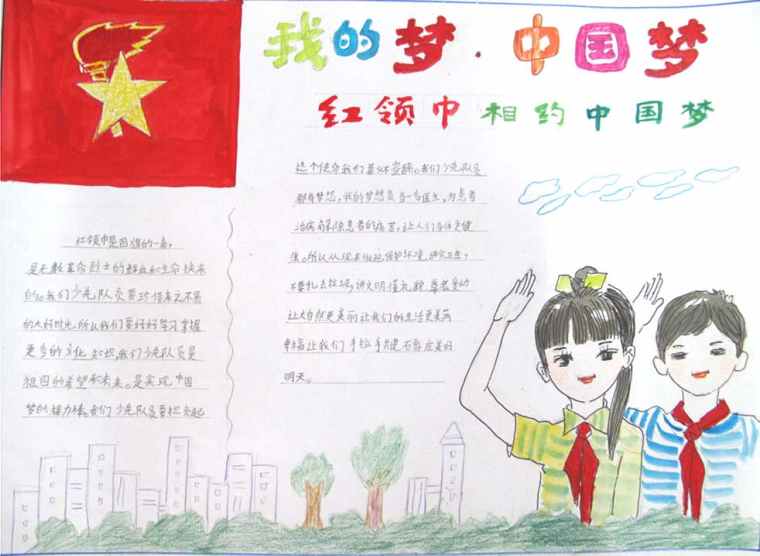 我的梦·中国梦
红领巾相约中国梦
红领巾是国旗的一角,
是无数革命烈士的鲜血和生命换来
的。我们少先队员要珍惜来之不易
的大好时光。所以我们要好好学习掌握
更多的文化知识,我们少先队员是
祖国的希望和未来。是实现中国
梦的接力棒。我们少先队员要担负起
这个使命我们义不容辞。我们少先队员
都有梦想,我的梦想是当一名医生,为患者
治病解除患者的痛苦,让人们身体更健
康。所以从现在做起保护环境,讲究卫生,
不要乱丢垃圾,讲文明懂礼貌,尊老爱幼
让大自然更美丽让我们的生活更美满
幸福让我们手拉手共建石家庄美好
明天。